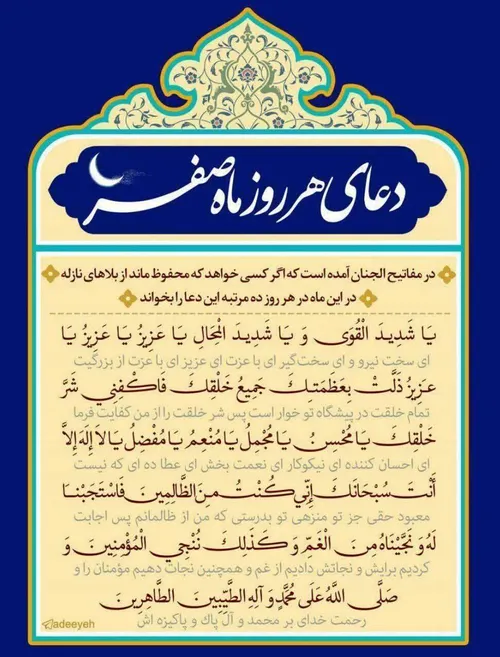 دعای هر روز ماه صفر
در مفاتیح الجنان آمده است که اگر کسی خواهد که محفوظ ماند از بلاهای نازله
در این ماه در هر روز ده مرتبه این دعا را بخواند
يَا شَدِيدَ الْقُوَى وَ يَا شَدِيدَ الْمِحَالِ يَا عَزِيزُ يَا عَزِيزُ يَا
ای سخت نیرو و ای سخت‌گیر ای با عزت ای عزیز ای با عزت از بزرگیت
عَزِيزُ ذَلَّتْ بِعَظَمَتِكَ جَمِيعُ خَلْقِكَ فَاكْفِنِي شَرَّ
تمام خلقت در پیشگاه تو خوار است پس شر خلقت را از من کفایت فرما
خَلْقِكَ يَا مُحْسِنُ يَا مُجْمِلُ يَا مُنْعِمُ يَا مُفْضِلُ يَا لا إِلَهَ إِلاَّ
ای احسان کننده ای نیکوکار ای نعمت بخش ای عطا ده ای که نیست
أَنْتَ سُبْحَانَكَ إِنِّي كُنْتُ مِنَ الظَّالِمِينَ فَاسْتَجَبْنَا
معبود حقی جز تو منزهی تو بدرستی که من از ظالمانم پس اجابت
لَهُ وَ نَجَّيْنَاهُ مِنَ الْغَمِّ وَ كَذَلِكَ نُنْجِي الْمُؤْمِنِينَ وَ
کردیم برایش و نجاتش دادیم از غم و همچنین نجات دهیم مؤمنان را و
صَلَّى اللَّهُ عَلَى مُحَمَّدٍ وَ آلِهِ الطَّيِّبِينَ الطَّاهِرِينَ
رحمت خدای بر محمد و آل پاک و پاکیزه اش
adeeyeh